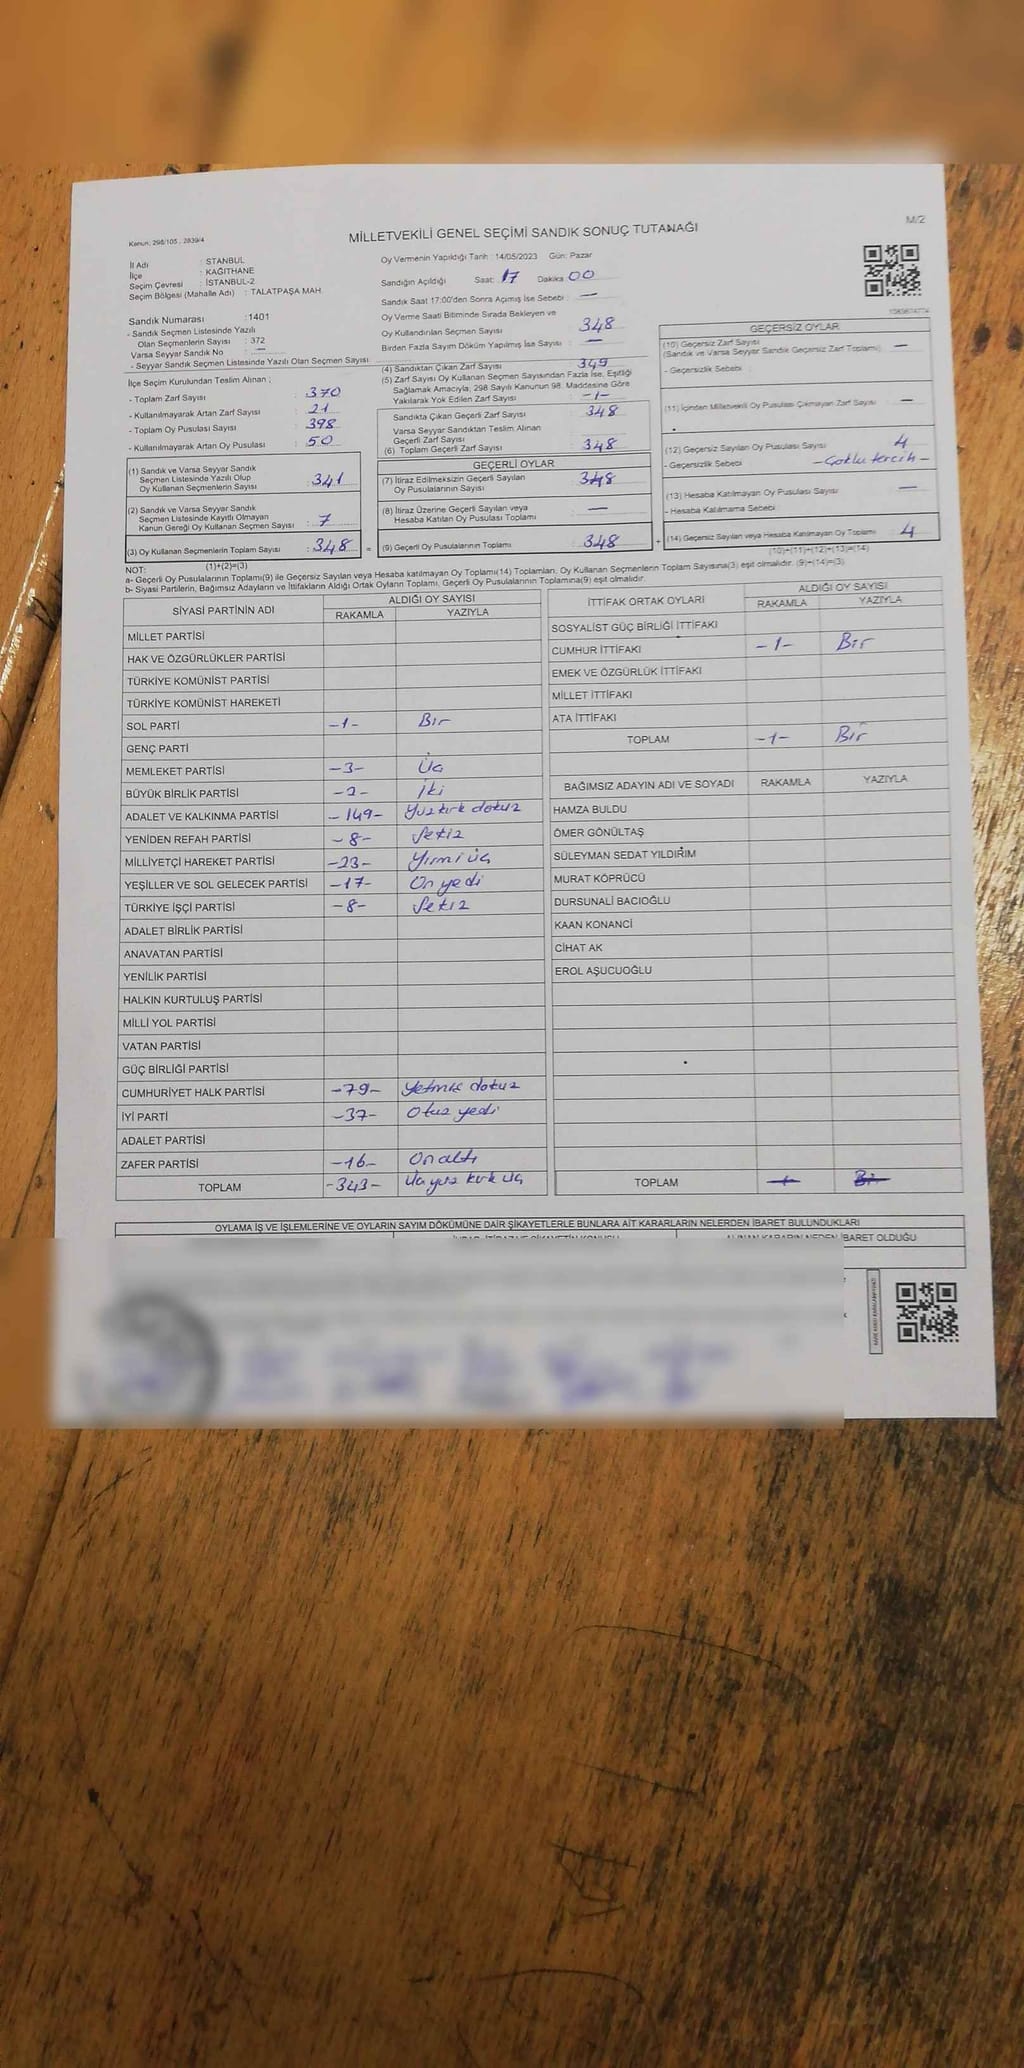 M/2
Kanun: 298/105 , 2839/4
MİLLETVEKİLİ GENEL SEÇİMİ SANDIK SONUÇ TUTANAĞI
İl Adı : STANBUL
İlçe : KAĞITHANE
Seçim Çevresi : İSTANBUL-2
Seçim Bölgesi (Mahalle Adı) : TALATPAŞA MAH.
Sandık Numarası :1401
- Sandık Seçmen Listesinde Yazılı
Olan Seçmenlerin Sayısı : 372
Varsa Seyyar Sandık No : —
- Seyyar Sandık Seçmen Listesinde Yazılı Olan Seçmen Sayısı
İlçe Seçim Kurulundan Teslim Alınan ;
- Toplam Zarf Sayısı : 370
- Kullanılmayarak Artan Zarf Sayısı : 21
- Toplam Oy Pusulası Sayısı : 398
- Kullanılmayarak Artan Oy Pusulası : 50
(1) Sandık ve Varsa Seyyar Sandık
Seçmen Listesinde Yazılı Olup
Oy Kullanan Seçmenlerin Sayısı : 341
(2) Sandık ve Varsa Seyyar Sandık
Seçmen Listesinde Kayıtlı Olmayan
Kanun Gereği Oy Kullanan Seçmen Sayısı : 7
(3) Oy Kullanan Seçmenlerin Toplam Sayısı : 348 =
(1)+(2)=(3)
Oy Vermenin Yapıldığı Tarih : 14/05/2023 Gün: Pazar
Sandığın Açıldığı Saat: 17 Dakika 00
Sandık Saat 17:00'den Sonra Açımış İse Sebebi : —
Oy Verme Saati Bitiminde Sırada Bekleyen ve
Oy Kullandırılan Seçmen Sayısı : 348
Birden Fazla Sayım Döküm Yapılmış İse Sayısı : —
(4) Sandıktan Çıkan Zarf Sayısı : 349
(5) Zarf Sayısı Oy Kullanan Seçmen Sayısından Fazla İse, Eşitliği
Sağlamak Amacıyla, 298 Sayılı Kanunun 98. Maddesine Göre
Yakılarak Yok Edilen Zarf Sayısı : -1-
Sandıkta Çıkan Geçerli Zarf Sayısı : 348
Varsa Seyyar Sandıktan Teslim Alınan
Geçerli Zarf Sayısı
(6) Toplam Geçerli Zarf Sayısı : 348
GEÇERLİ OYLAR
(7) İtiraz Edilmeksizin Geçerli Sayılan
Oy Pusulalarının Sayısı : 348
(8) İtiraz Üzerine Geçerli Sayılan veya
Hesaba Katılan Oy Pusulası Toplamı : —
(9) Geçerli Oy Pusulalarının Toplamı : 348 +
GEÇERSİZ OYLAR
(10) Geçersiz Zarf Sayısı
(Sandık ve Varsa Seyyar Sandık Geçersiz Zarf Toplamı) : —
- Geçersizlik Sebebi :
(11) İçinden Milletvekili Oy Pusulası Çıkmayan Zarf Sayısı : —
(12) Geçersiz Sayılan Oy Pusulası Sayısı : 4
- Geçersizlik Sebebi : -Çoklu tercih-
(13) Hesaba Katılmayan Oy Pusulası Sayısı : —
- Hesaba Katılmama Sebebi :
(14) Geçersiz Sayılan veya Hesaba Katılmayan Oy Toplamı : 4
(10)+(11)+(12)+(13)=(14)
NOT:
a- Geçerli Oy Pusulalarının Toplamı(9) ile Geçersiz Sayılan veya Hesaba katılmayan Oy Toplamı(14) Toplamları, Oy Kullanan Seçmenlerin Toplam Sayısına(3) eşit olmalıdır. (9)+(14)=(3)
b- Siyasi Partilerin, Bağımsız Adayların ve İttifakların Aldığı Ortak Oyların Toplamı, Geçerli Oy Pusulalarının Toplamına(9) eşit olmalıdır.
SİYASİ PARTİNİN ADI ALDIĞI OY SAYISI
RAKAMLA YAZIYLA
MİLLET PARTİSİ
HAK VE ÖZGÜRLÜKLER PARTİSİ
TÜRKİYE KOMÜNİST PARTİSİ
TÜRKİYE KOMÜNİST HAREKETİ
SOL PARTİ -1- Bir
GENÇ PARTİ
MEMLEKET PARTİSİ -3- Üç
BÜYÜK BİRLİK PARTİSİ -2- İki
ADALET VE KALKINMA PARTİSİ -149- Yüz kırk dokuz
YENİDEN REFAH PARTİSİ -8- Sekiz
MİLLİYETÇİ HAREKET PARTİSİ -23- Yirmi üç
YEŞİLLER VE SOL GELECEK PARTİSİ -17- On yedi
TÜRKİYE İŞÇİ PARTİSİ -8- Sekiz
ADALET BİRLİK PARTİSİ
ANAVATAN PARTİSİ
YENİLİK PARTİSİ
HALKIN KURTULUŞ PARTİSİ
MİLLİ YOL PARTİSİ
VATAN PARTİSİ
GÜÇ BİRLİĞİ PARTİSİ
CUMHURİYET HALK PARTİSİ -79- Yetmiş dokuz
İYİ PARTİ -37- Otuz yedi
ADALET PARTİSİ
ZAFER PARTİSİ -16- On altı
TOPLAM -343- Üç yüz kırk üç
İTTİFAK ORTAK OYLARI ALDIĞI OY SAYISI
RAKAMLA YAZIYLA
SOSYALİST GÜÇ BİRLİĞİ İTTİFAKI
CUMHUR İTTİFAKI -1- Bir
EMEK VE ÖZGÜRLÜK İTTİFAKI
MİLLET İTTİFAKI
ATA İTTİFAKI
TOPLAM -1- Bir
BAĞIMSIZ ADAYIN ADI VE SOYADI RAKAMLA YAZIYLA
HAMZA BULDU
ÖMER GÖNÜLTAŞ
SÜLEYMAN SEDAT YILDIRIM
MURAT KÖPRÜCÜ
DURSUNALİ BACIOĞLU
KAAN KONANCİ
CİHAT AK
EROL AŞUCUOĞLU
TOPLAM 1 Bir
OYLAMA İŞ VE İŞLEMLERİNE VE OYLARIN SAYIM DÖKÜMÜNE DAİR ŞİKAYETLERLE BUNLARA AİT KARARLARIN NELERDEN İBARET BULUNDUKLARI
ALINAN KARARIN NEDEN İBARET OLDUĞU